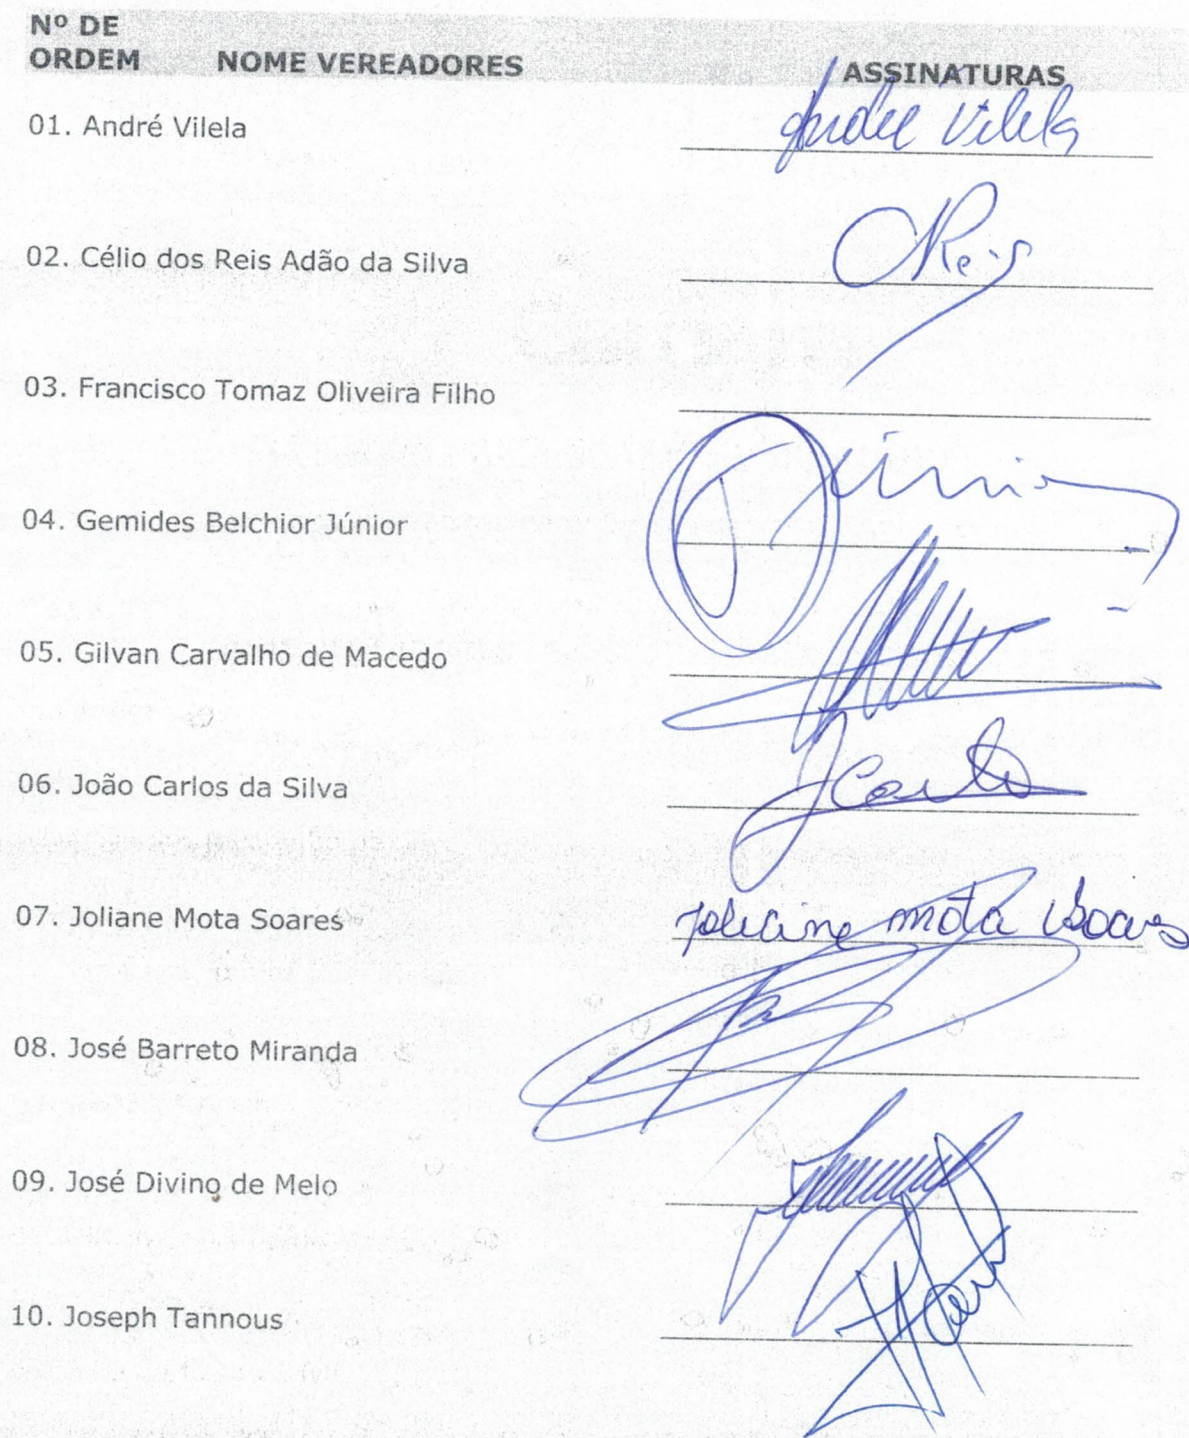 Nº DE
ORDEM NOME VEREADORES ASSINATURAS
01. André Vilela André Vilela
02. Célio dos Reis Adão da Silva CReis
03. Francisco Tomaz Oliveira Filho
04. Gemides Belchior Júnior Júnior
05. Gilvan Carvalho de Macedo
06. João Carlos da Silva JCarlos
07. Joliane Mota Soares Joliane Mota Soares
08. José Barreto Miranda
09. José Divino de Melo
10. Joseph Tannous